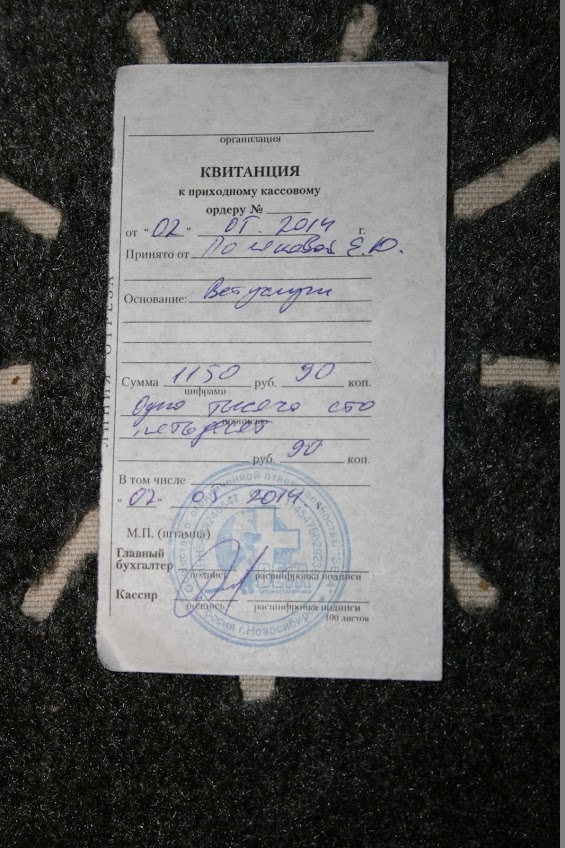 организация
КВИТАНЦИЯ
к приходному кассовому
ордеру №
от "02" 05. 2014 г.
Принято от Поляковой Е.Ю.
Основание: Ветуслуги
Сумма 1150 руб. 90 коп.
цифрами
Одна тысяча сто
прописью
пятьдесят
руб. 90 коп.
В том числе
"02" 05 2014 г.
М.П. (штампа)
Главный
бухгалтер
подпись расшифровка подписи
Кассир
подпись расшифровка подписи
100 листов
ЛИНИЯ ОТРЕЗА
Россия г.Новосибирск